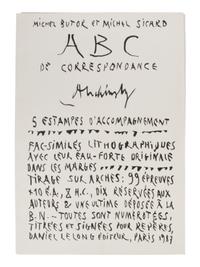 MICHEL BUTOR ET MICHEL SICARD
ABC
DE CORRESPONDANCE
Alechinsky
5 ESTAMPES D'ACCOMPAGNEMENT
FAC-SIMILÉS LITHOGRAPHIQUES
AVEC LEUR EAU-FORTE ORIGINALE
DANS LES MARGES
TIRAGE SUR ARCHES: 99 ÉPREUVES
+10 E.A., 2 H.C., DIX RÉSERVÉES AUX
AUTEURS & UNE ULTIME DÉPOSÉE À LA
B.N. ~ TOUTES SONT NUMÉROTÉES,
TITRÉES ET SIGNÉES POUR REPÈRES,
DANIEL LELONG ÉDITEUR, PARIS 1987